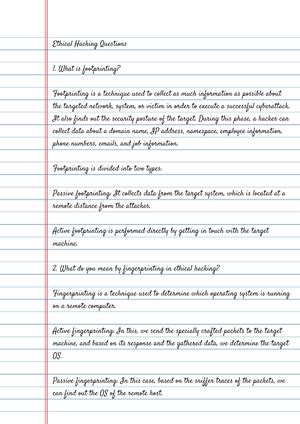 Ethical Hacking Questions
1. What is footprinting?
Footprinting is a technique used to collect as much information as possible about
the targeted network, system, or victim in order to execute a successful cyberattack.
It also finds out the security posture of the target. During this phase, a hacker can
collect data about a domain name, IP address, namespace, employee information,
phone numbers, emails, and job information.
Footprinting is divided into two types:
Passive footprinting: It collects data from the target system, which is located at a
remote distance from the attacker.
Active footprinting is performed directly by getting in touch with the target
machine.
2. What do you mean by fingerprinting in ethical hacking?
Fingerprinting is a technique used to determine which operating system is running
on a remote computer.
Active fingerprinting: In this, we send the specially crafted packets to the target
machine, and based on its response and the gathered data, we determine the target
OS.
Passive fingerprinting: In this case, based on the sniffer traces of the packets, we
can find out the OS of the remote host.